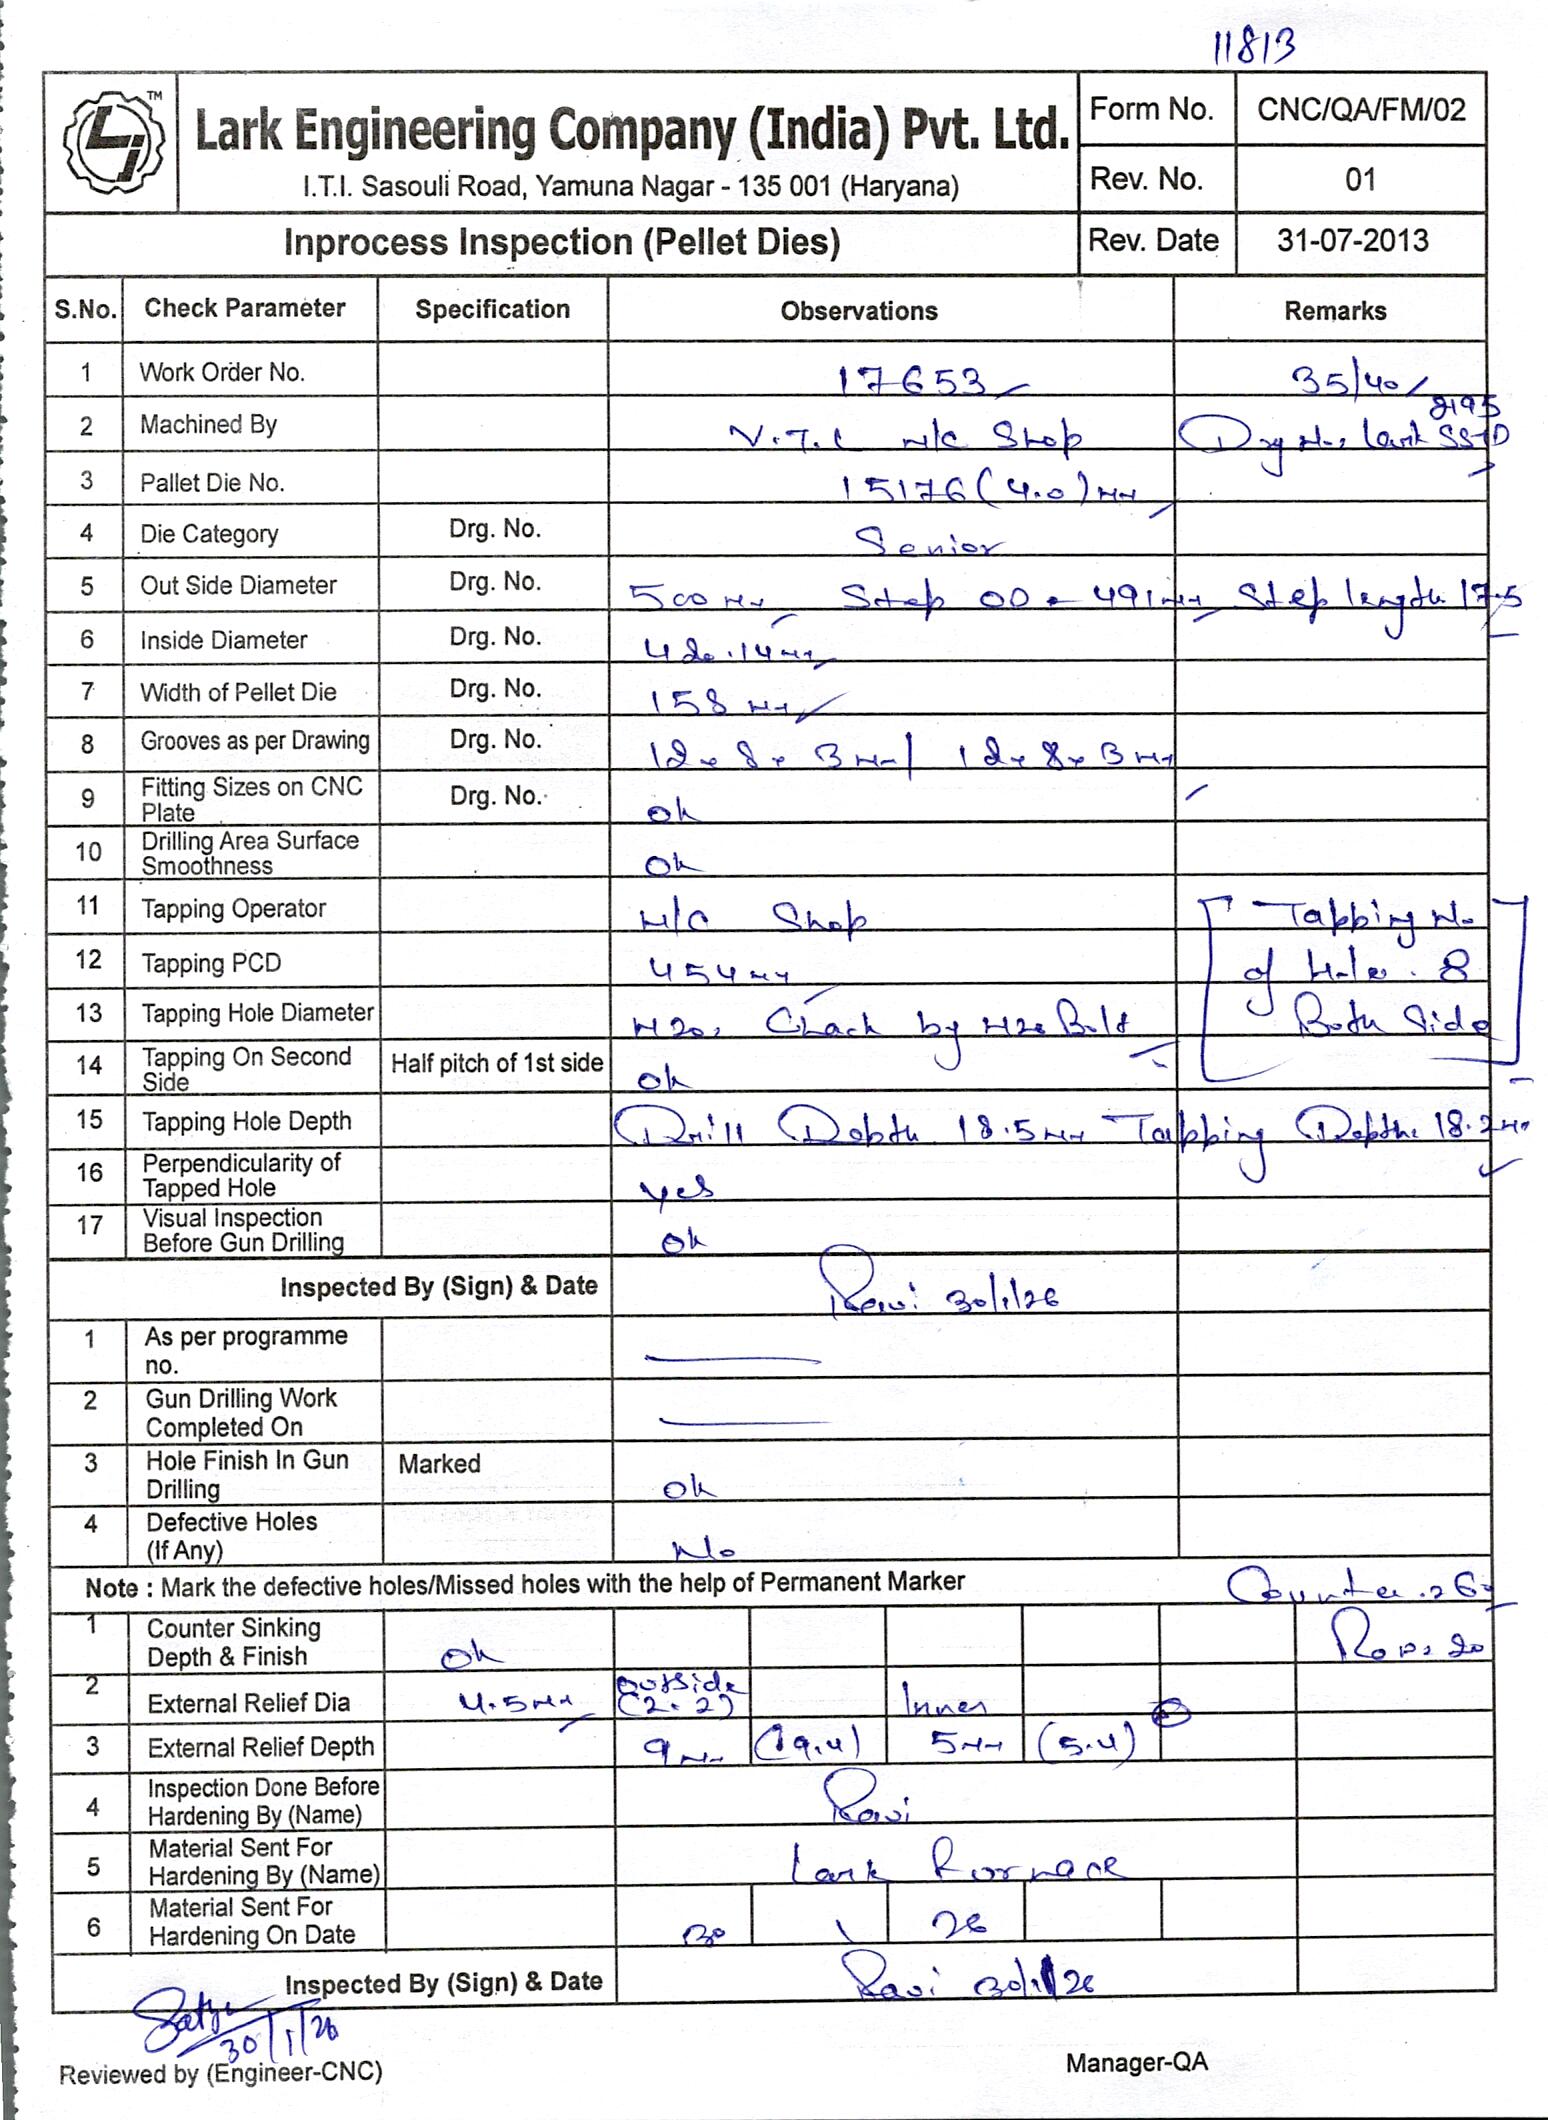 11813
TM
Lark Engineering Company (India) Pvt. Ltd.
I.T.I. Sasouli Road, Yamuna Nagar - 135 001 (Haryana)
Form No. CNC/QA/FM/02
Rev. No. 01
Inprocess Inspection (Pellet Dies) Rev. Date 31-07-2013
S.No. Check Parameter Specification Observations Remarks
1 Work Order No. 17653 35/40
2 Machined By V.T.L M/C Shop
3 Pallet Die No. 15176 (4.0) mm
4 Die Category Drg. No. Senior
5 Out Side Diameter Drg. No. 500 mm Step OD - 491mm Step length 17.5
6 Inside Diameter Drg. No. 420.14mm
7 Width of Pellet Die Drg. No. 158 mm
8 Grooves as per Drawing Drg. No. 12 x 8 x 3 mm / 12 x 8 x 3 mm
9 Fitting Sizes on CNC Plate Drg. No. ok
10 Drilling Area Surface Smoothness ok
11 Tapping Operator M/C Shop Tapping No
12 Tapping PCD 454mm of Hole. 8
13 Tapping Hole Diameter M20, Chack by M20 Bolt Both Side
14 Tapping On Second Side Half pitch of 1st side ok
15 Tapping Hole Depth Drill Depth 18.5mm Tapping Depth 18.2mm
16 Perpendicularity of Tapped Hole yes
17 Visual Inspection Before Gun Drilling ok
Inspected By (Sign) & Date Ravi 30/1/26
1 As per programme no.
2 Gun Drilling Work Completed On
3 Hole Finish In Gun Drilling Marked ok
4 Defective Holes (If Any) No
Note : Mark the defective holes/Missed holes with the help of Permanent Marker Counter
1 Counter Sinking Depth & Finish ok
2 External Relief Dia 4.5mm outside (2.2) Inner
3 External Relief Depth 9mm (9.4) 5mm (5.4)
4 Inspection Done Before Hardening By (Name) Ravi
5 Material Sent For Hardening By (Name) Lark Furnace
6 Material Sent For Hardening On Date 30 1 26
Inspected By (Sign) & Date Ravi 30/1/26
30/1/26
Reviewed by (Engineer-CNC) Manager-QA